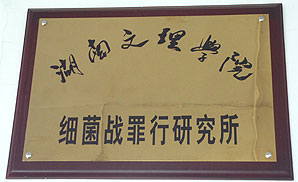 湖南文理学院
细菌战罪行研究所